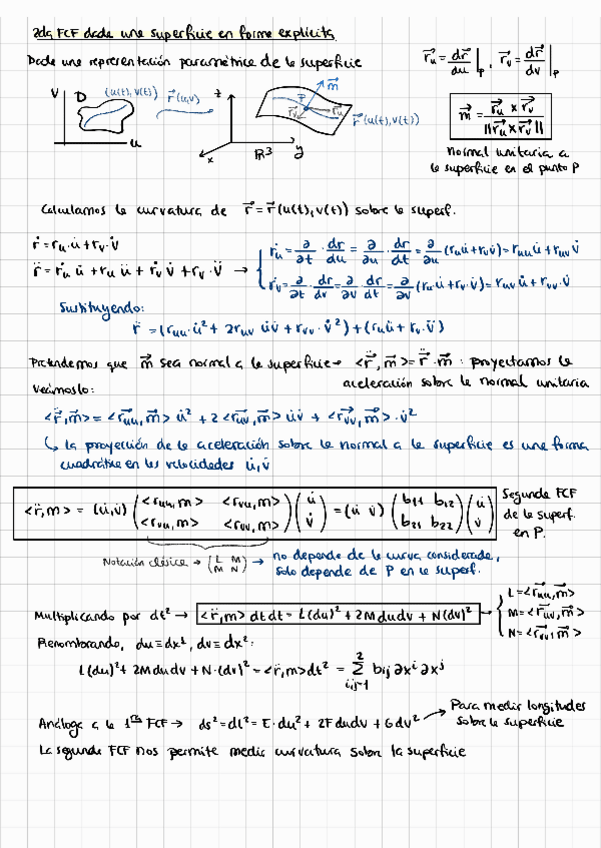 2da FCF dada una superficie en forma explícita
Dada una representación paramétrica de la superficie
r⃗u = dr⃗/du |p , r⃗v = dr⃗/dv |p
V D (u(t),v(t)) r⃗(u,v) z P m⃗ r⃗v r⃗u r⃗(u(t),v(t))
u x R³ y
m⃗ = r⃗u x r⃗v / ||r⃗u x r⃗v||
normal unitaria a
la superficie en el punto P
Calculamos la curvatura de r⃗ = r⃗(u(t),v(t)) sobre la superf.
ṙ = ru·u̇ + rv·v̇
r̈ = ṙu u̇ + ru ü + ṙv v̇ + rv · v̈ →
ṙu = ∂/∂t · dr/du = ∂/∂u · dr/dt = ∂/∂u (ru u̇ + rv v̇) = ruu u̇ + ruv v̇
ṙv = ∂/∂t · dr/dv = ∂/∂v · dr/dt = ∂/∂v (ru·u̇ + rv·v̇) = ruv u̇ + rvv·v̇
Sustituyendo:
r̈ = (ruu·u̇² + 2ruv u̇v̇ + rvv·v̇²) + (ru ü + rv·v̈)
Pretendemos que m⃗ sea normal a la superficie → <r̈, m⃗> = r̈ · m⃗ : proyectamos la
aceleración sobre la normal unitaria
Veámoslo:
<r̈, m⃗> = <r⃗uu, m⃗> u̇² + 2<r⃗uv, m⃗> u̇v̇ + <r⃗vv, m⃗>·v̇²
↳ la proyección de la aceleración sobre la normal a la superficie es una forma
cuadrática en las velocidades u̇, v̇
<r̈, m> = (u̇, v̇) (<ruu, m> <rvu, m> <rvu, m> <rvv, m>) (u̇ v̇) = (u̇ v̇) (b11 b12 b21 b22) (u̇ v̇)
Segunda FCF
de la superf.
en P.
Notación clásica → (L M M N) → no depende de la curva considerada,
solo depende de P en la superf.
Multiplicando por dt² → <r̈, m> dt dt = L(du)² + 2M du dv + N(dv)²
L = <r⃗uu, m⃗>
M = <r⃗uv, m⃗>
N = <r⃗vv, m⃗>
Renombrando, du ≡ dx¹, dv ≡ dx²:
L(du)² + 2M du dv + N·(dv)² = <r̈, m> dt² = 2 Σ i,j=1 bij ∂xⁱ ∂xʲ
Análoga a la 1ra FCF → ds² = dl² = E·du² + 2F du dv + G dv² → Para medir longitudes
sobre la superficie
La segunda FCF nos permite medir curvatura sobre la superficie